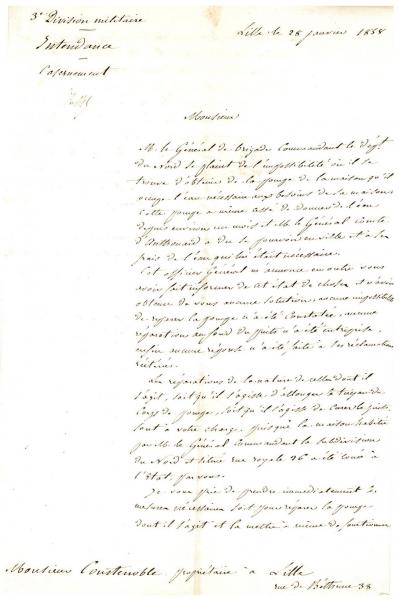 3e Division militaire
Lille le 28 janvier 1858
Intendance
Casernement
Monsieur
M. le Général de brigade Commandant le Dépt
du Nord se plaint de l'impossibilité où il se
trouve d'obtenir de la pompe de la maison qu'il
occupe l'eau nécessaire aux besoins de sa maison
Cette pompe a même cessé de donner de l'eau
depuis environ un mois et M. le Général comte
d'Anthouard a du se pourvoir en ville et à ses
frais de l'eau qui lui était nécessaire.
Cet officier Général m'annonce en outre vous
avoir fait informer de cet état de choses et n'avoir
obtenu de vous aucune solution, aucune impossibilité
de réparer la pompe n'a été constatée, aucune
réparation au fond du puits n'a été entreprise,
enfin aucune réponse n'a été faite à ses réclamations
réitérées.
Les réparations de la nature de celles dont il
s'agit, soit qu'il s'agisse d'allonger le tuyau du
Corps de pompe, soit qu'il s'agisse de curer le puits,
sont à votre charge puisque la maison habitée
par M. le Général Commandant la subdivision
du Nord et située rue royale 26 a été louée à
l'état par vous.
Je vous prie de prendre immédiatement les
mesures nécessaires soit pour réparer la pompe
dont il s'agit et la mettre à même de fonctionner
Monsieur Constenoble propriétaire à Lille
rue de Béthune 38